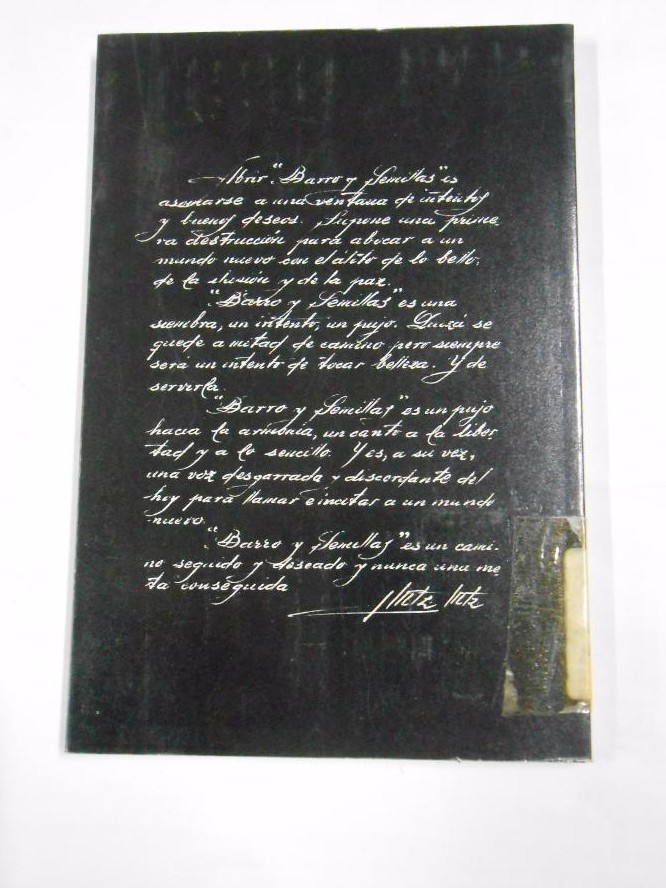 Abrir "Barro y Semillas" es
asomarse a una ventana de intentos
y buenos deseos. Supone una prime-
ra destrucción para abocar a un
mundo nuevo con el alito de lo bello,
de la ilusión y de la paz.
"Barro y Semillas" es una
siembra, un intento, un pujo. Quizá se
quede a mitad de camino pero siempre
será un intento de tocar belleza. Y de
servirla.
"Barro y Semillas" es un pujo
hacia la armonía, un canto a la liber-
tad y a lo sencillo. Y es, a su vez,
una voz desgarrada y discordante del
hoy para llamar e incitar a un mundo
nuevo.
"Barro y Semillas" es un cami-
no seguido y deseado y nunca una me-
ta conseguida